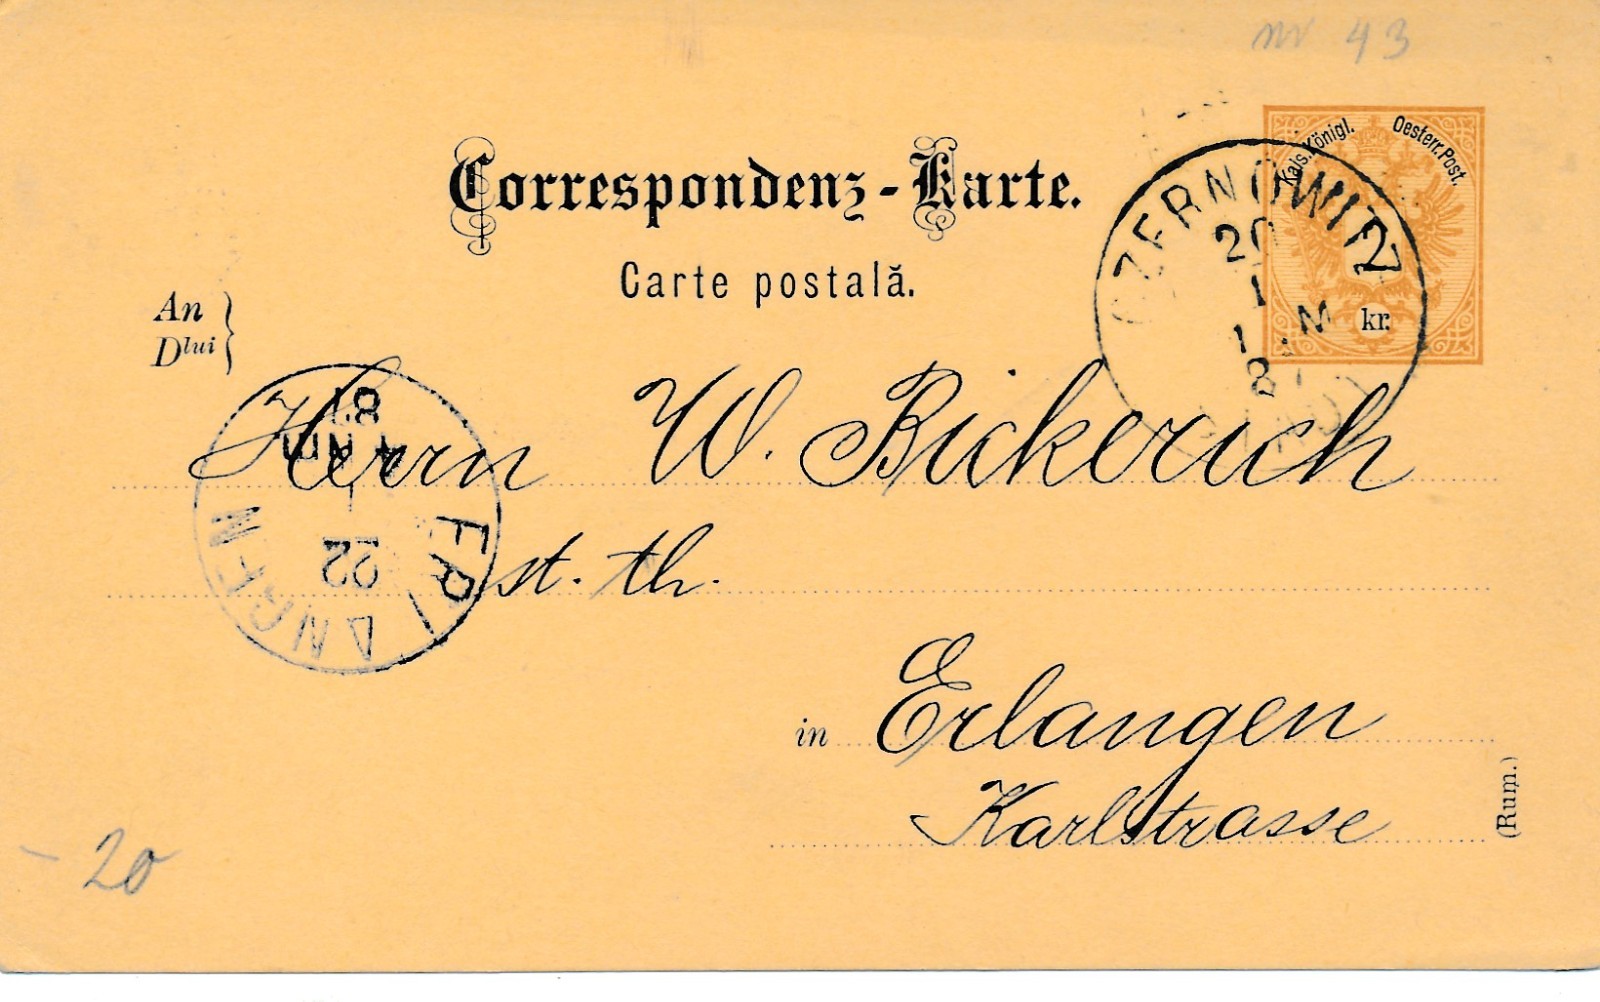 nr 43
Kais. Königl. Oesterr. Post.
2
kr.
CZERNOWITZ
20
1
M
8
Correspondenz-Karte.
Carte postală.
An
Dlui
Herrn W. Bickerich
st. th.
ERLANGEN
22
in Erlangen
Karlstrasse
(Rum.)
- 20